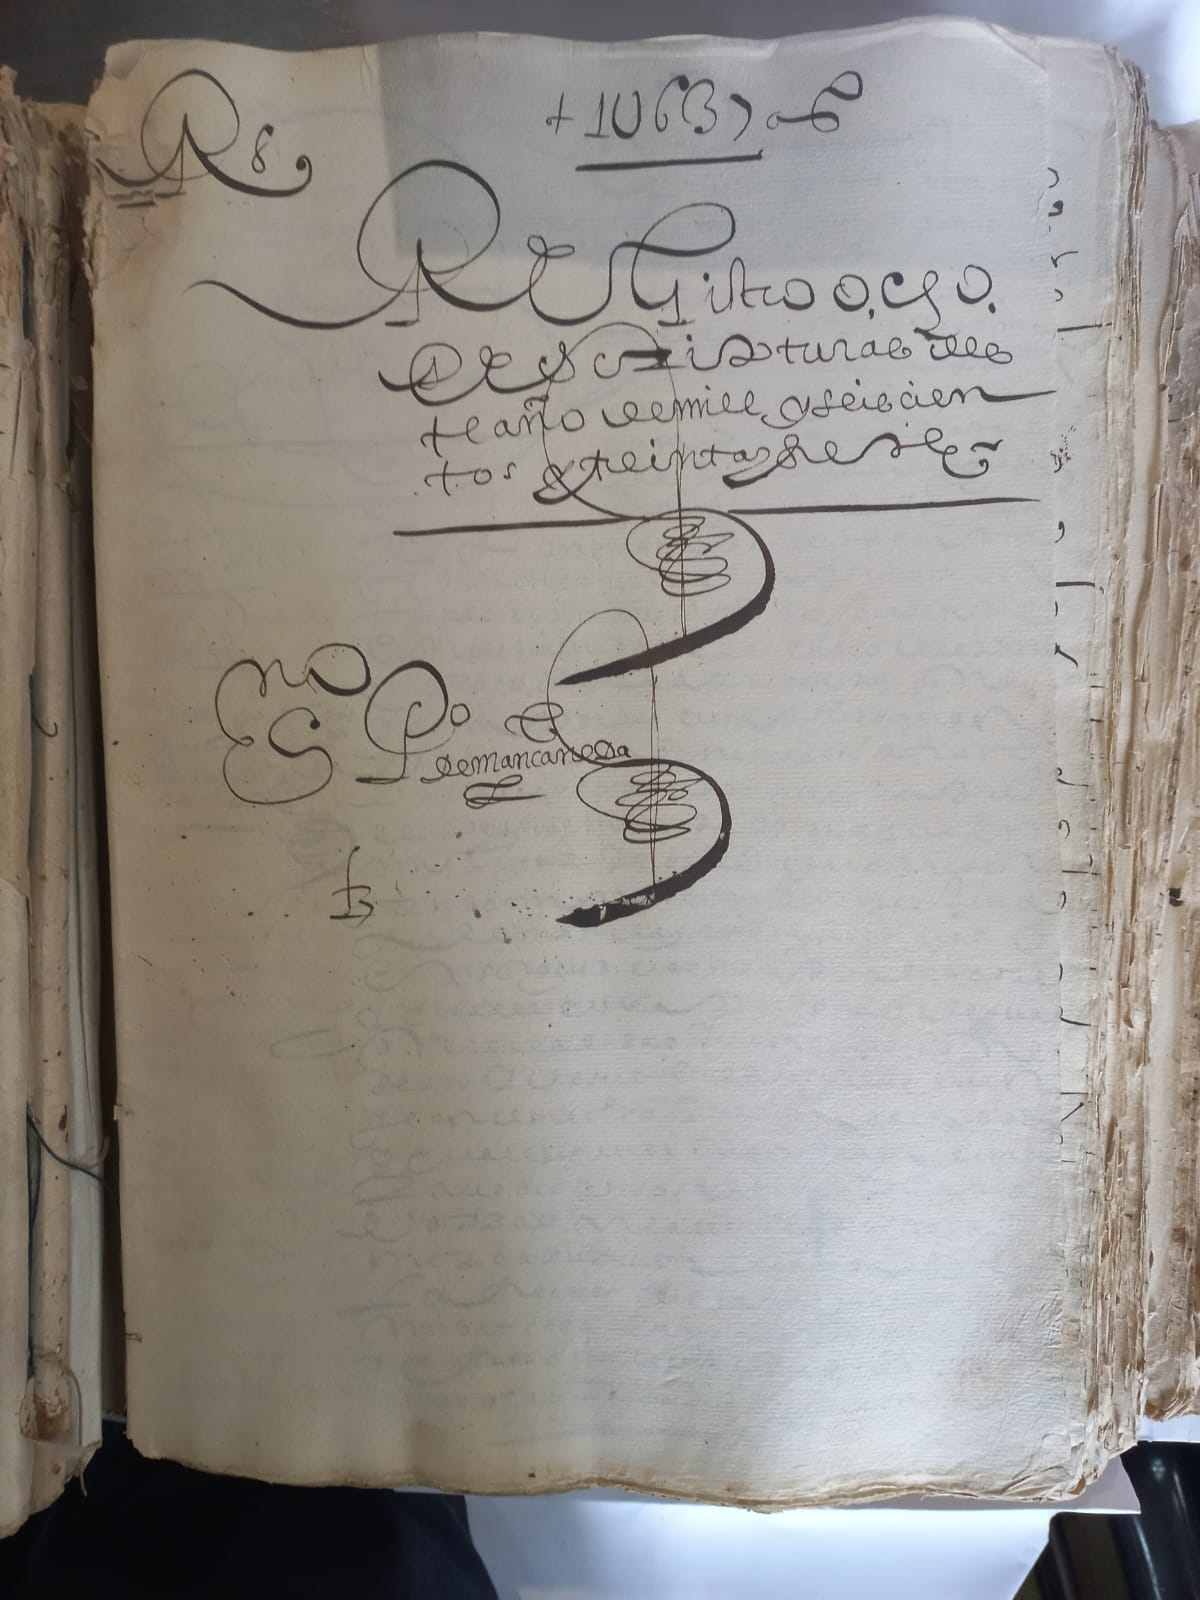 R 8
+ 1U637 as
Registro ocho
de escripturas des
te año de mill y seiscien
tos y treinta y siete
Esno Po
de mancaneda